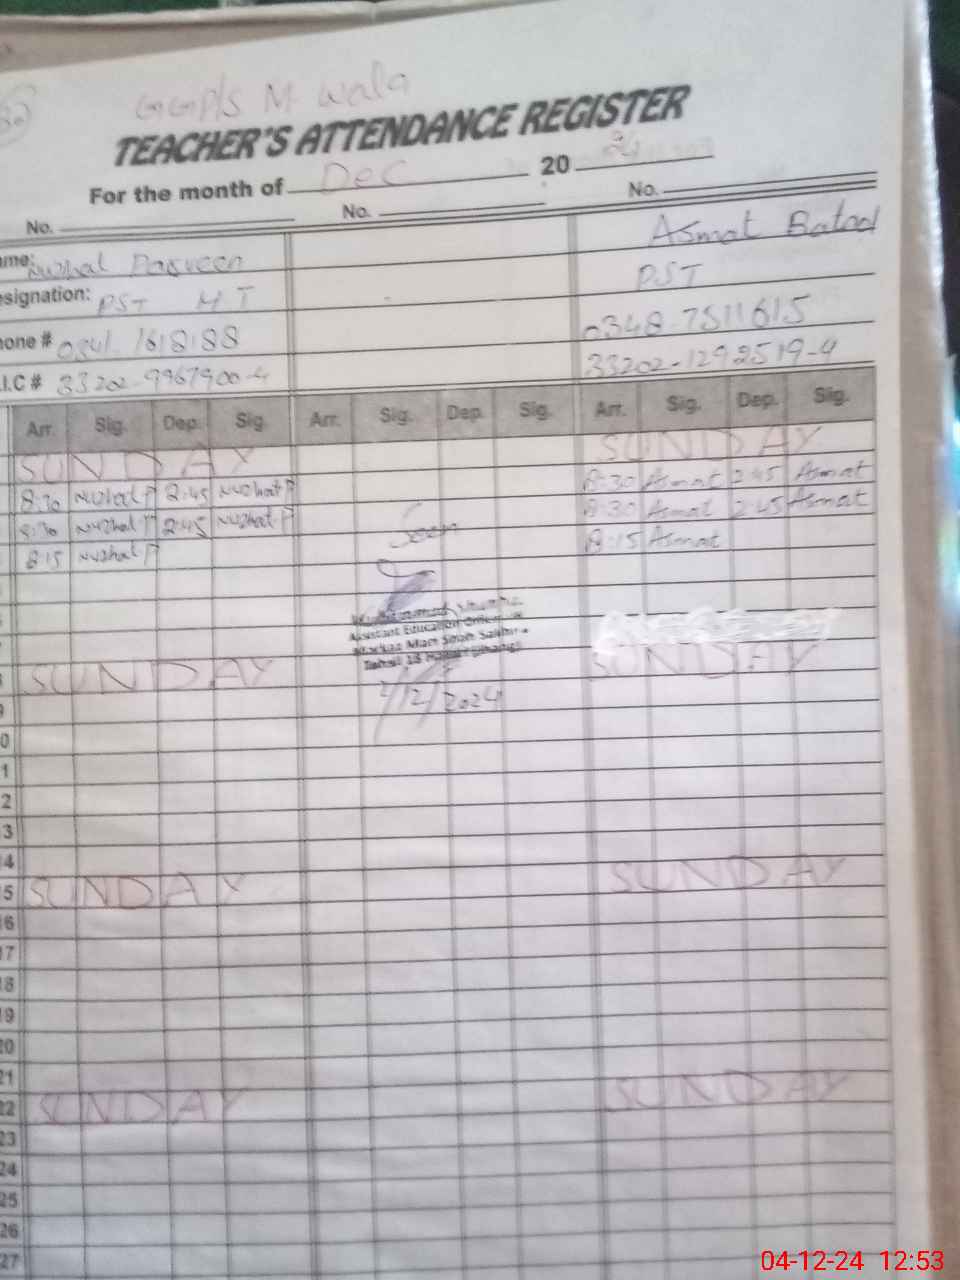 GGP/S M Wala
TEACHER'S ATTENDANCE REGISTER
For the month of Dec 20 24
No. No. No.
ame: Nuzhat Parveen Asmat Batool
esignation: PST M T PST
hone # 0341. 1618188 0348-7511615
.I.C # 33202-9967900-4 33202-1292519-4
Arr. Sig. Dep. Sig. Arr. Sig. Dep. Sig. Arr. Sig. Dep. Sig.
SUNDAY SUNDAY
8:30 Nuzhat P 2:45 Nuzhat P 8:30 Asmat 2:45 Asmat
8:30 Nuzhat P 2:45 Nuzhat P Seen 8:30 Asmat 2:45 Asmat
8:15 Nuzhat P 8:15 Asmat
Assistant Education Officer
Markaz
Tehsil 18 Hazari (Jhang)
SUNDAY SUNDAY
/12/2024
9
0
1
2
3
4
5 SUNDAY SUNDAY
16
17
18
19
20
21
22 SUNDAY SUNDAY
23
24
25
26
27
04-12-24 12:53